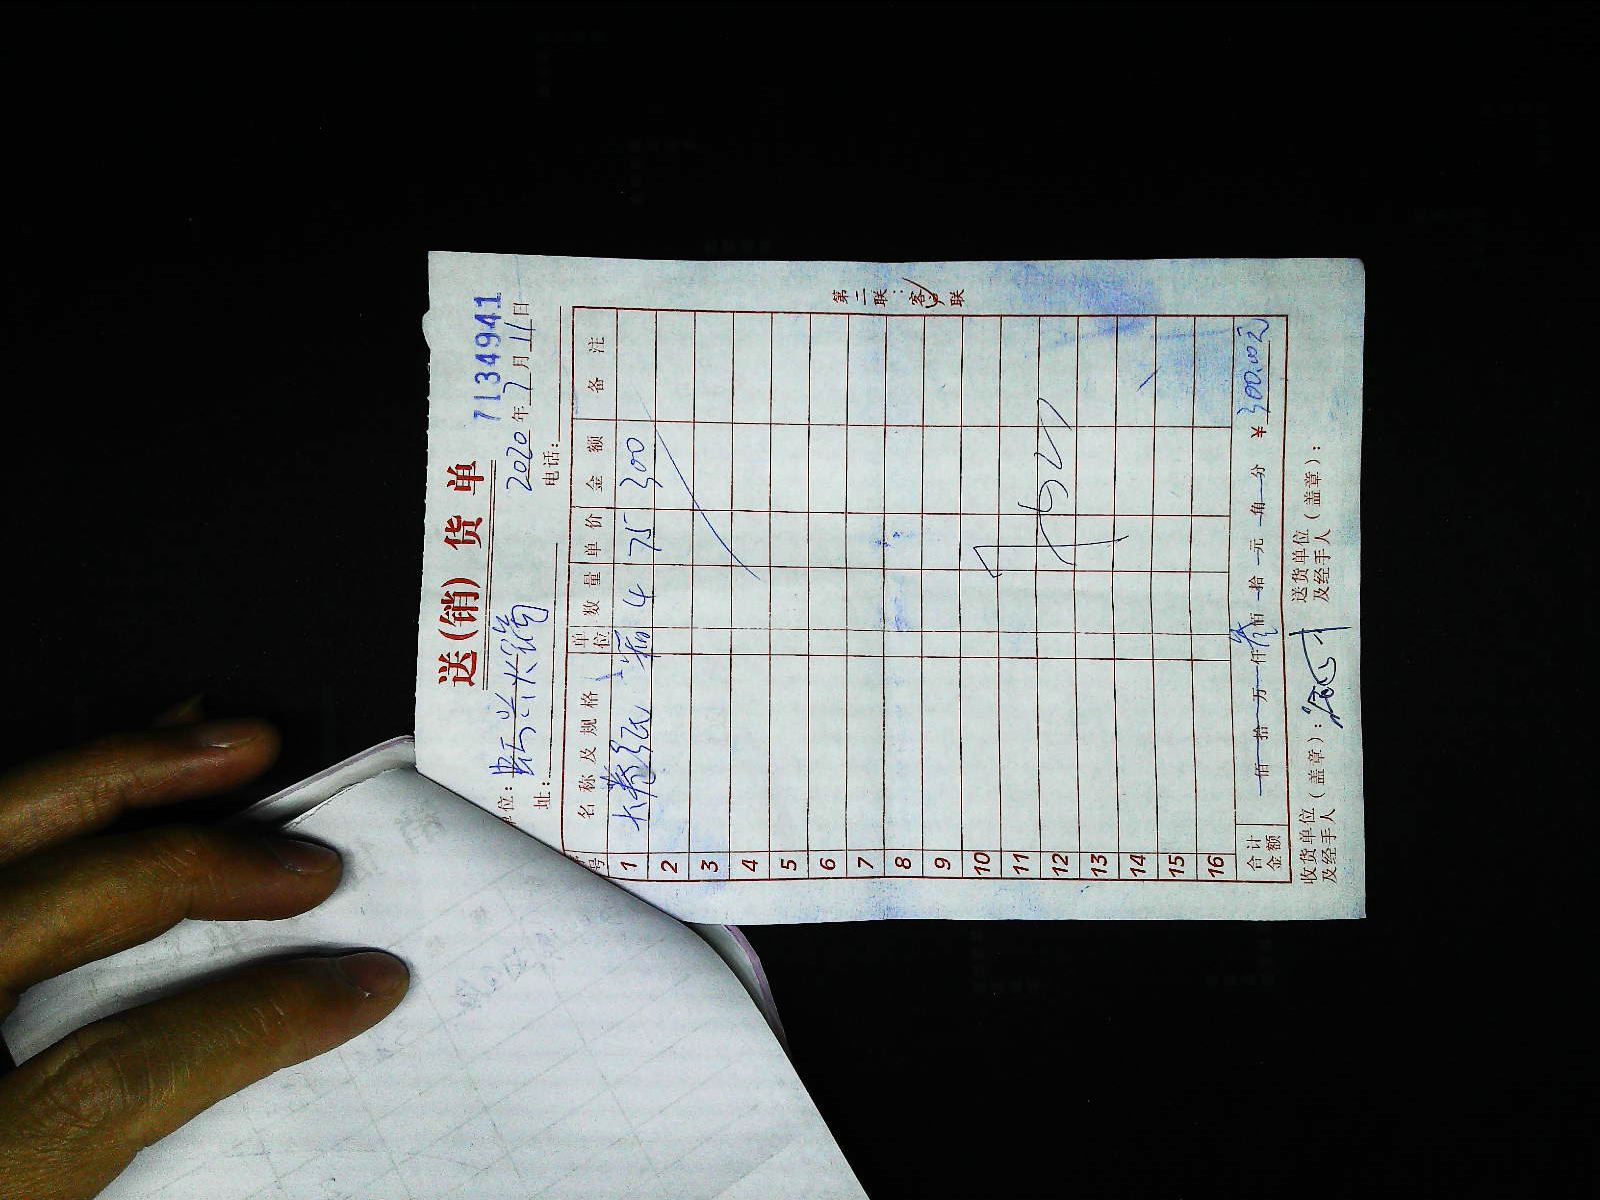 送(销)货单
7134941
2020年7月11日
位:
址: 电话:
号 名称及规格 单位 数量 单价 金额 备注
1 大卷纸 箱 4 75 300
2
3
4
5
6
7
8
9
10
11
12
13
14
15
16
合计金额 佰拾万仟叁佰拾元角分 ¥300.00元
收货单位及经手人(盖章): 送货单位及经手人(盖章):
第二联:客户联